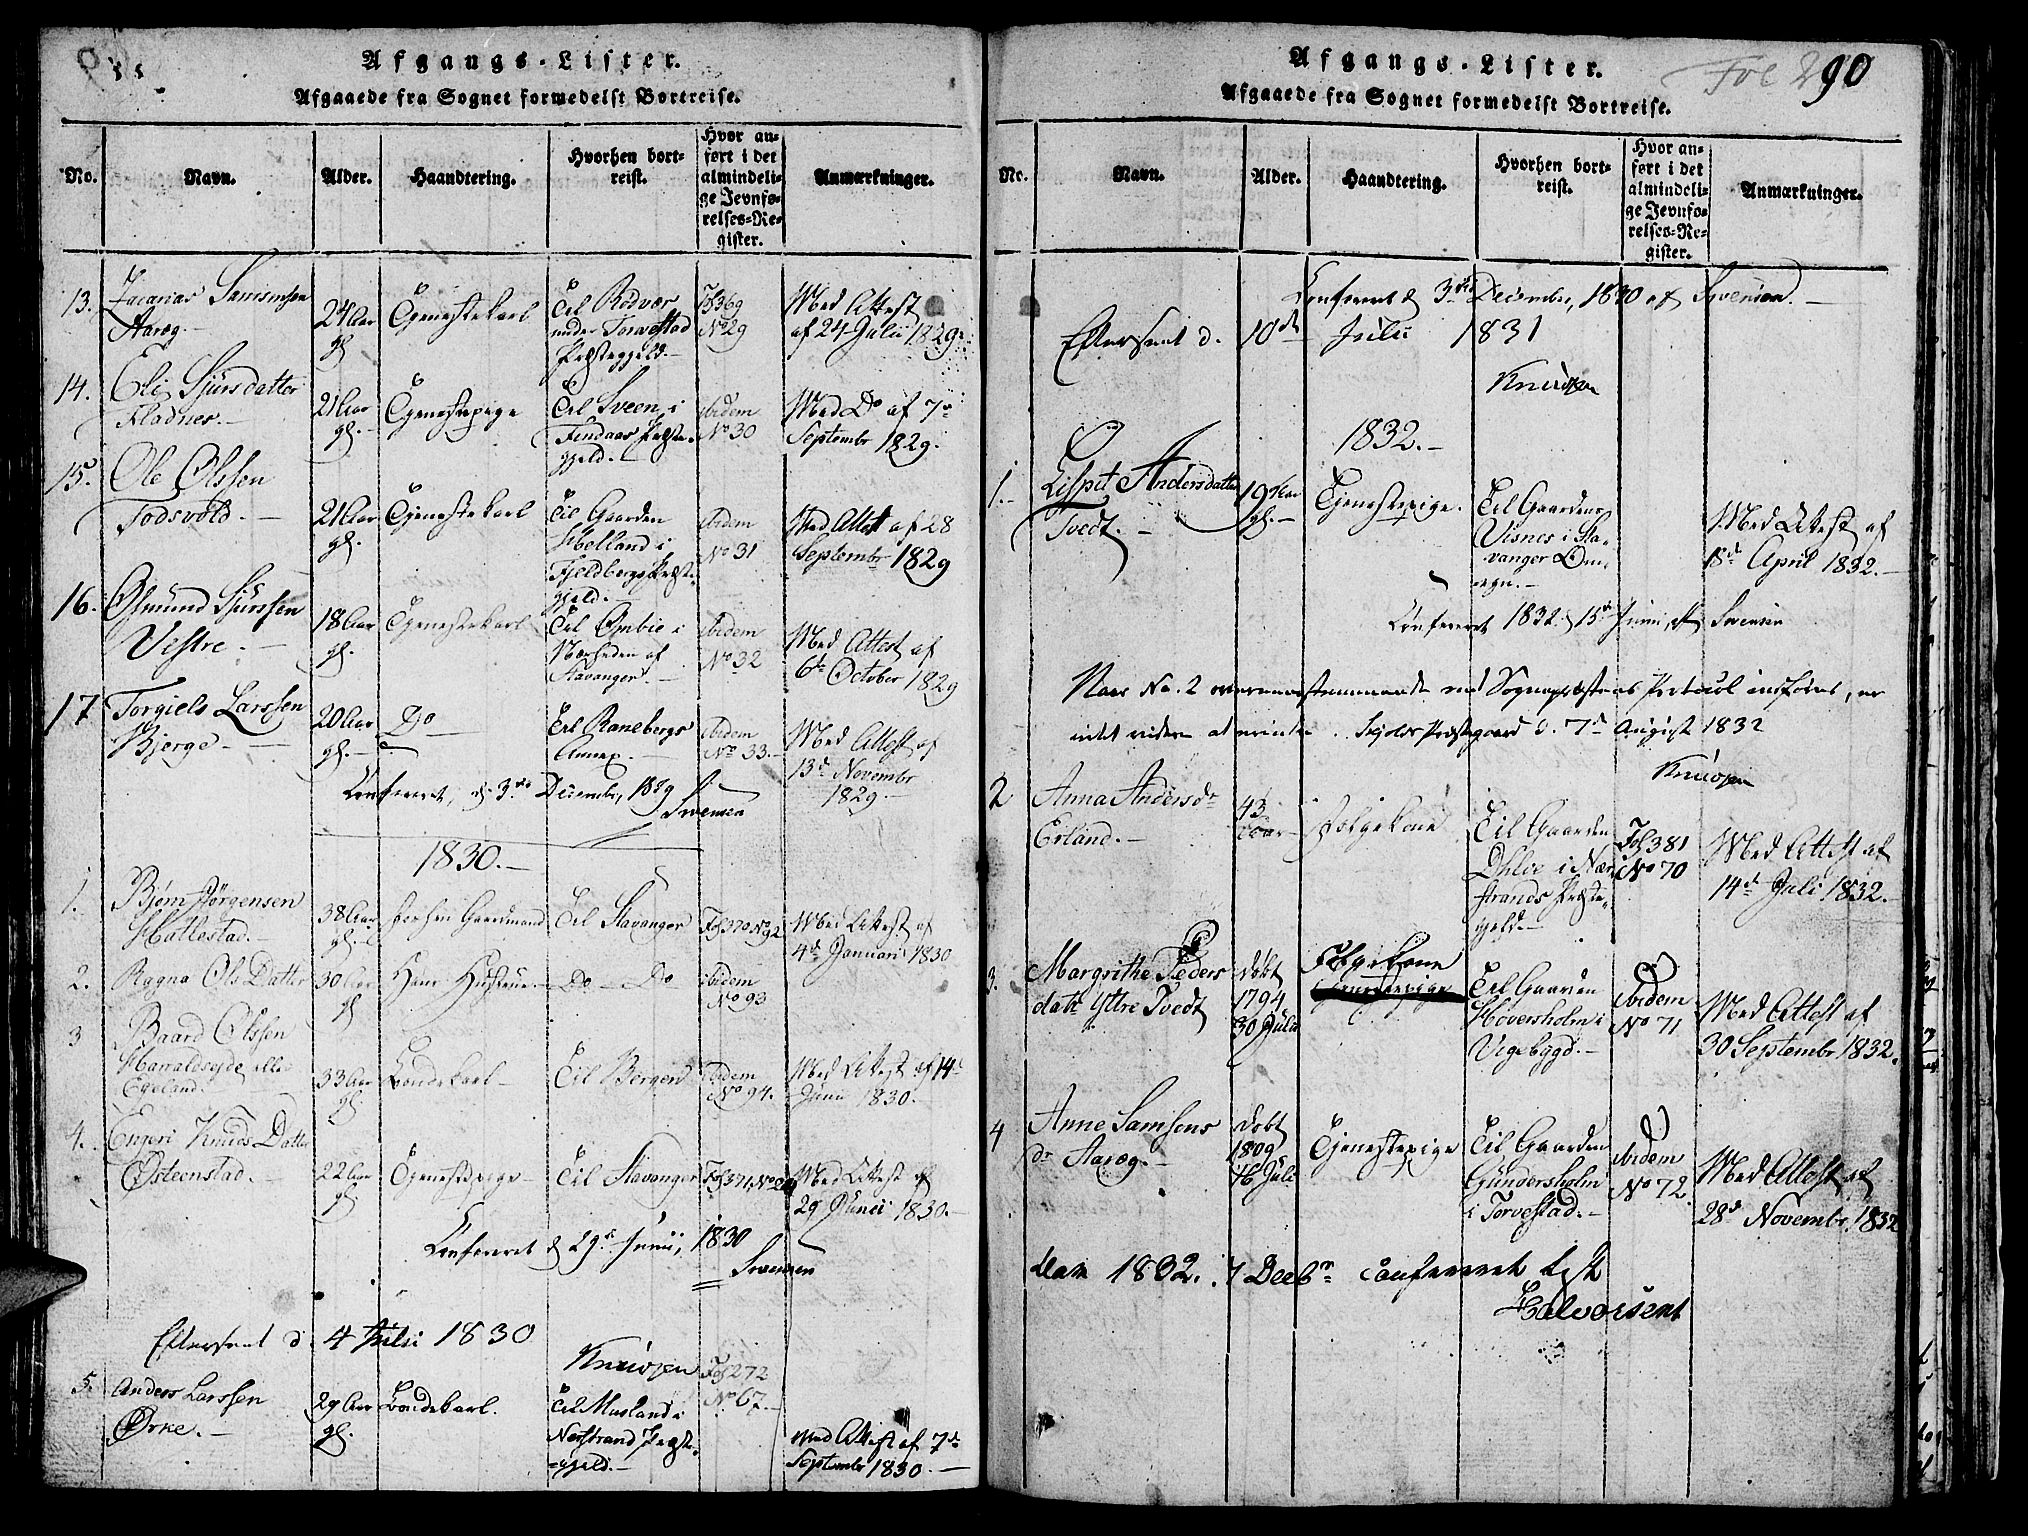 Afgangs-Lister.
Afgaaede fra Sognet formedelst Bortreise.
No.
Navn.
Alder.
Haandtering.
Hvorhen bort-
reist.
Hvor an-
ført i det
almindeli-
ge Jevnfø-
relses-Re-
gister.
Anmærkninger.
13.
Zacarias Samsonsen
Aarøg.
24 Aar
gl.
Tjenestekarl
Til Rødvær
under Torvestad
Præstegjeld.
Fol 369
No 29
Med Attest
af 24 Julii 1829.
14.
Eli Sjursdatter
Fladnes.
21 Aar
gl.
Tjenestepige
Til Sveen i
Findaas Præste-
gjeld.
ibidem
No 30
Med Do af 7de
Septembr 1829.
15.
Ole Olssen
Todsvold.
21 Aar
gl.
Tjenestekarl
Til Gaarden
Helland i
Fjeldbergs Præste-
gjeld.
ibidem
No 31
Med Attest af 28
Septembr 1829
16.
Ømund Sjurssen
Vestre.
18 Aar
gl.
Tjenestekarl
Til Ombie i
Nærheden af
Stavanger.
ibidem
No 32
Med Attest af
6te October 1829
17
Torgiels Larssen
Bjerge
20 Aar
gl.
Do
Til Ranebergs
Annex.
ibidem
No 33.
Med Attest af
13de Novembr
1829.
Confereret, d 3die December, 1829
Svensen
1830.
1.
Bjørn Jørgensen
Hallestad.
38 Aar
gl.
forhen Gaardmand
Til Stavanger
Fol 370 No 92
Med Attest af
4de Januari 1830
2.
Ragna Ols Datter
30 Aar
gl
Hans Hustrue.
Do Do
ibidem
No 93
3
Baard Olssen
Haraldseyde eller
Egeland.
33 Aar
gl.
Bondekarl
Til Bergen
ibidem
No 94.
Med Attest af 14de
Junii 1830.
4.
Engeri Knuds Datter
Østeenstad.
22 Aar
gl
Tjenestepige
Til Stavanger
Fol 371, No
Med Attest af
29 Junii 1830.
Confereret d 29de Junii, 1830
Svensen
Efterseet d. 4 Julii 1830
Knudzen
5.
Anders Larssen
Ørke.
29 Aar
gl.
Bondekarl.
Til Musland i
Nerstrand Præste-
gjeld.
Fol 272
No 67.
Med Attest af 7de
Septembr 1830.
Afgangs-Lister.
Fol 290
Afgaaede fra Sognet formedelst Bortreise.
No.
Navn.
Alder.
Haandtering.
Hvorhen bort-
reist.
Hvor an-
ført i det
almindeli-
ge Jevnfø-
relses-Re-
gister.
Anmærkninger.
Confereret d 3die December, 1830 af Svensen.
Efterseet d. 10de Julii 1831
Knudzen
1832.
1.
Lispet Andersdatter
Tvedt.
19 Aar
gl.
Tjenestepige.
Til Gaarden
Visnes i Sta-
vanger Om-
egn.
Med Attest af
18de April 1832.
Confereret 1832 d 15de Junii, af Svensen
Naar No. 2 overeensstemmende med Sognepræstens Protocol indføres, er
intet videre at erindre. Skjolds Præstegaard d. 7de August 1832
Knudzen
2
Anna Andersdr
Erland.
43
Aar
Følgekone
Til Gaarden
i Nær-
strands Præste-
gjeld.
Fol 381
No 70
Med Attest af
14de Juli 1832.
3.
Margrithe Peders
datr Ytre Tvedt
døbt
1794
30 Julii
Følgekone
Til Gaarden
Høversholm i
Vigebygd.
ibidem
No 71
Med Attest af
30 Septembr 1832.
4
Anne Samsons
dr Aarøg.
døbt
1809
16 Juli
Tjenestepige
Til Gaarden
Gundersholm
i Torvestad.
ibidem
No 72
Med Attest af
28de Novembr 1832
den 1832. 7 Decbr confereret
Halvorsen